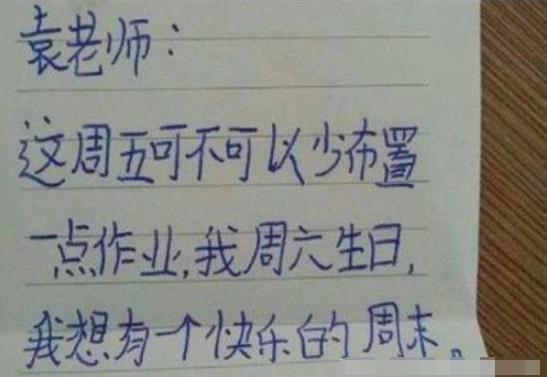 袁老师：
这周五可不可以少布置
一点作业,我周六生日,
我想有一个快乐的周末。